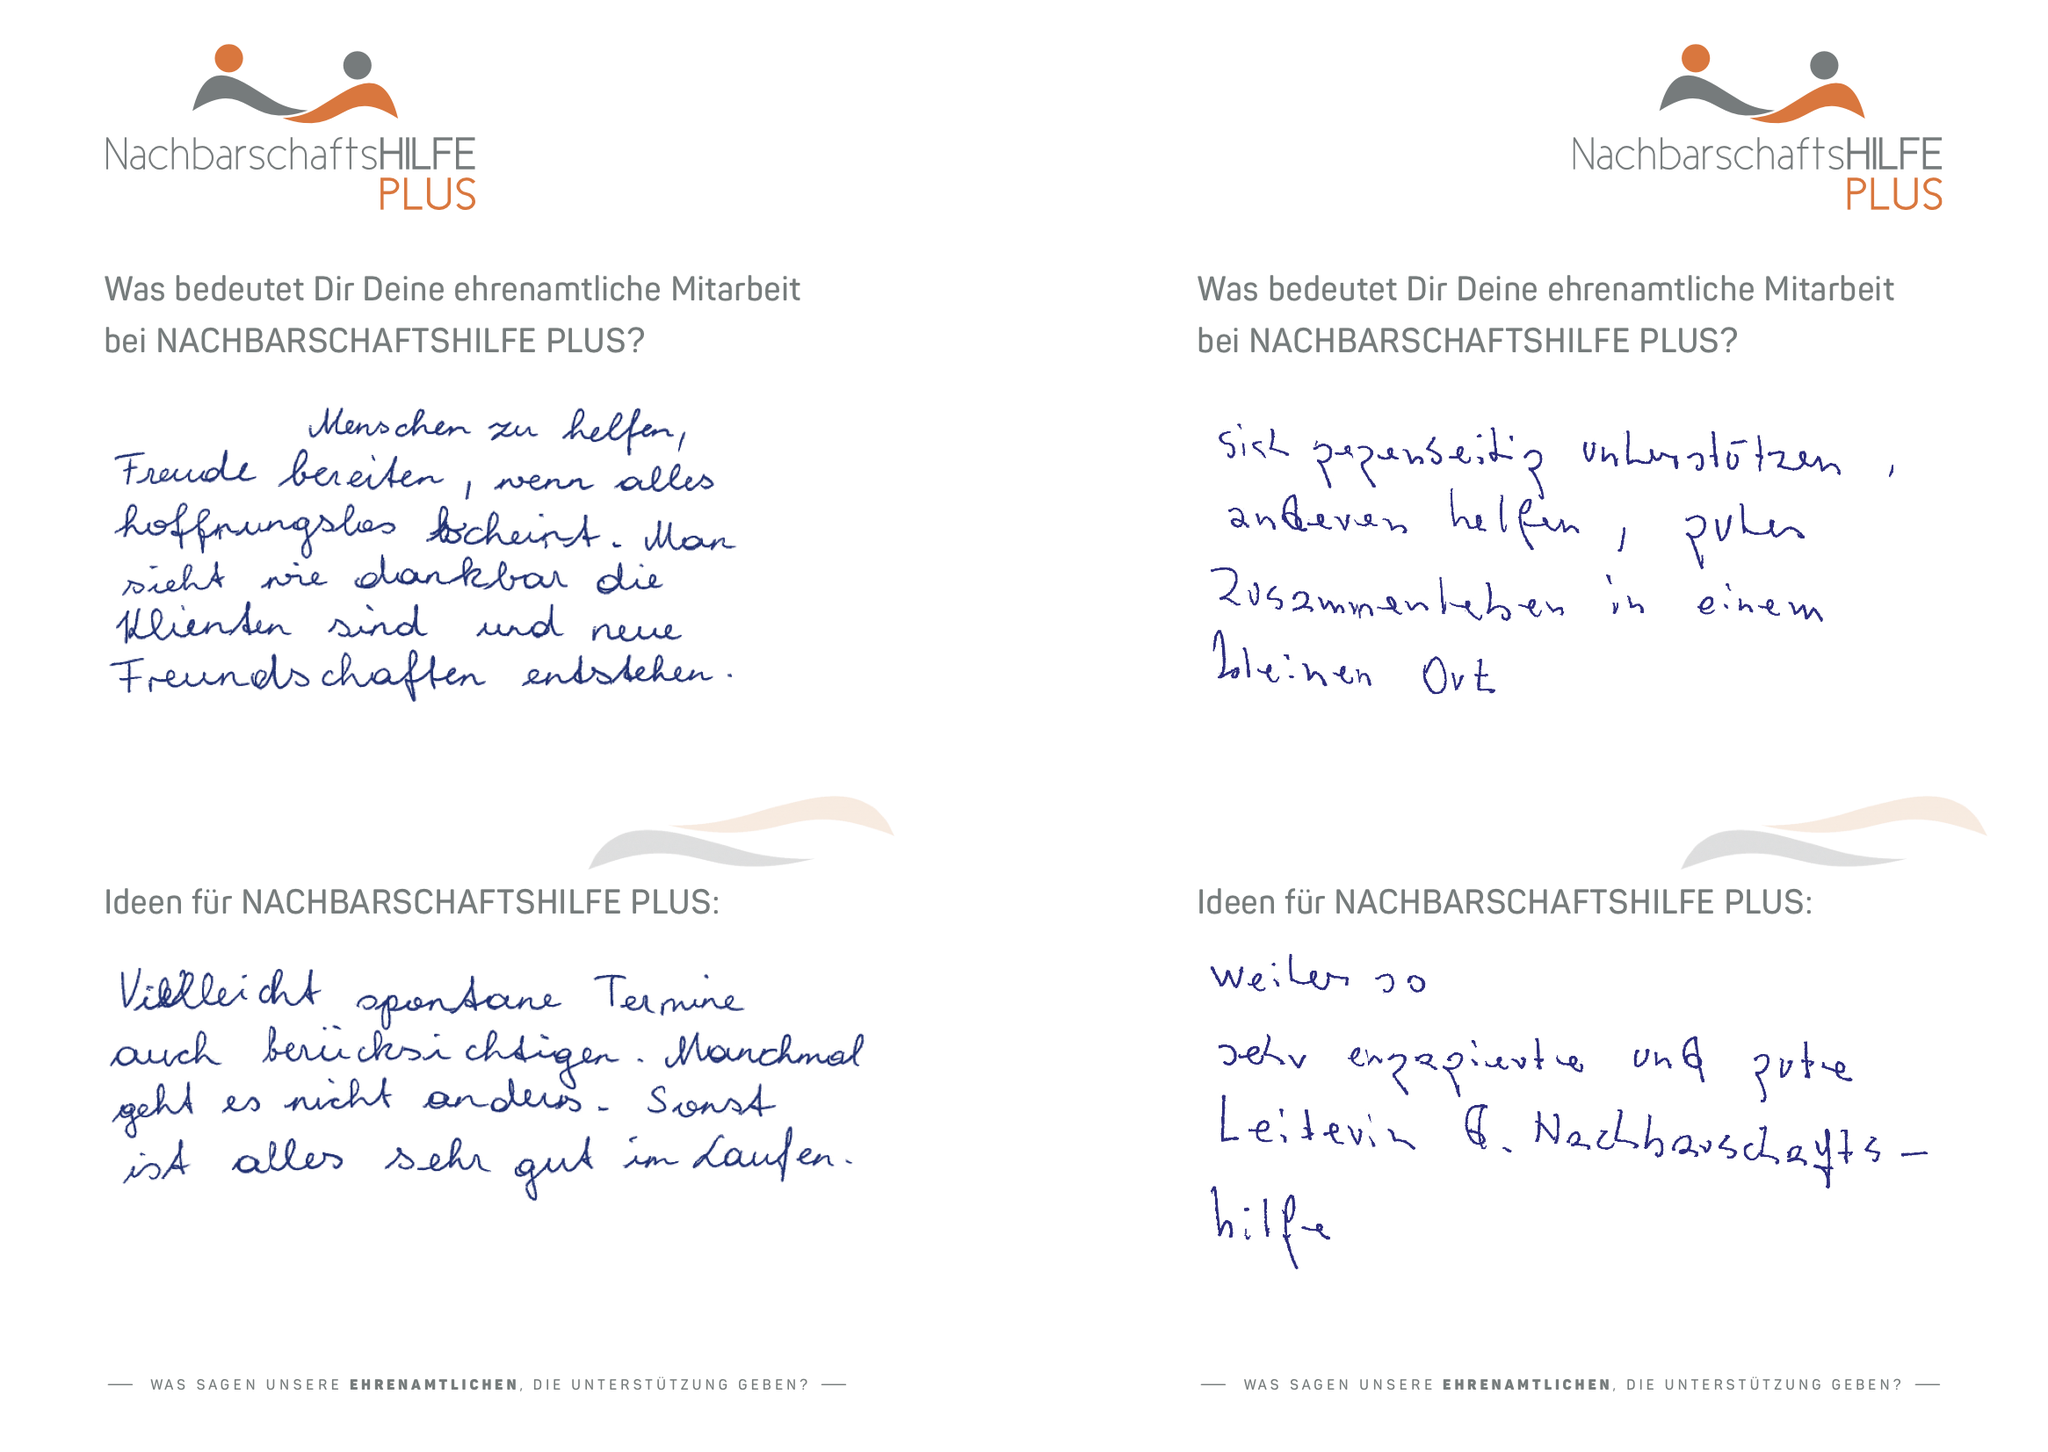 NachbarschaftsHILFE
PLUS
Was bedeutet Dir Deine ehrenamtliche Mitarbeit
bei NACHBARSCHAFTSHILFE PLUS?
Menschen zu helfen,
Freude bereiten, wenn alles
hoffnungslos scheint. Man
sieht wie dankbar die
Klienten sind und neue
Freundschaften entstehen.
Ideen für NACHBARSCHAFTSHILFE PLUS:
Vielleicht spontane Termine
auch berücksichtigen. Manchmal
geht es nicht anders. Sonst
ist alles sehr gut im Laufen.
— WAS SAGEN UNSERE EHRENAMTLICHEN, DIE UNTERSTÜTZUNG GEBEN? —
NachbarschaftsHILFE
PLUS
Was bedeutet Dir Deine ehrenamtliche Mitarbeit
bei NACHBARSCHAFTSHILFE PLUS?
sich gegenseitig unterstützen,
anderen helfen, gutes
Zusammenleben in einem
kleinen Ort
Ideen für NACHBARSCHAFTSHILFE PLUS:
weiter so
sehr engagierte und gute
Leiterin d. Nachbarschafts-
hilfe
— WAS SAGEN UNSERE EHRENAMTLICHEN, DIE UNTERSTÜTZUNG GEBEN? —